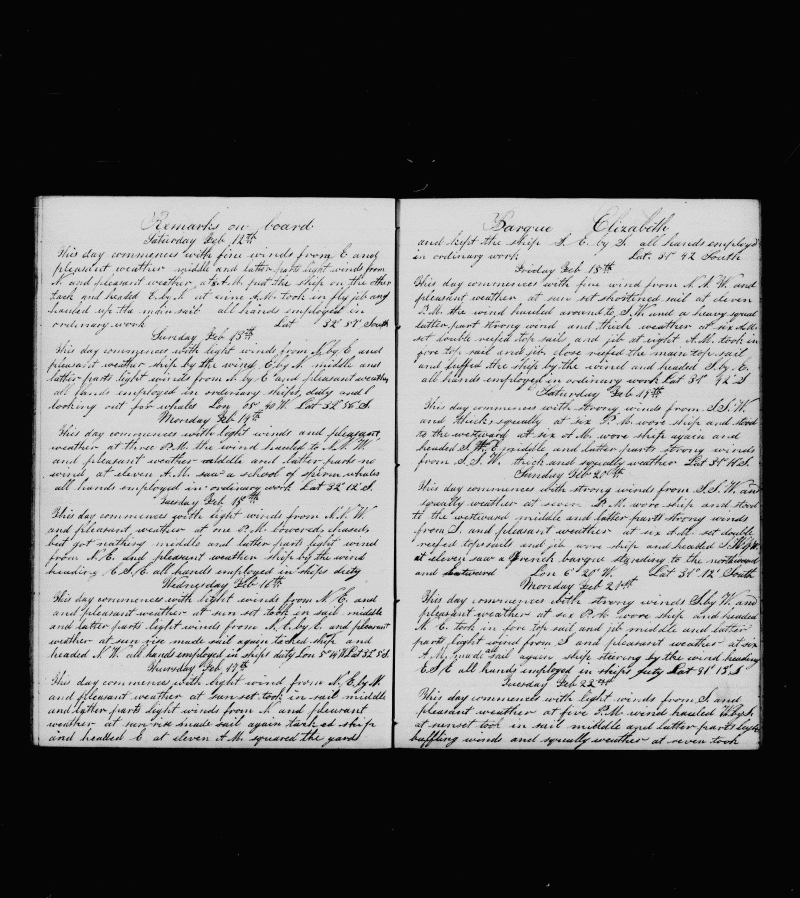 Remarks on board
Saturday Feb 12th
This day commences with fine winds from E and
pleasant weather middle and latter parts light winds from
N and pleasant weather at A.M. put the ship on the other
tack and headed E. by N at nine A.M. took in fly jib and
hauled up the main sail all hands employed in
ordinary work Lat 32° South
Sunday Feb 13th
This day commences with light winds from N by E and
pleasant weather ship by the wind E by N middle and
latter parts light winds from N by E and pleasant weather
all hands employed in ordinary ships duty and
looking out for whales Lon 40 W Lat 32° 56 S.
Monday Feb 14th
This day commences with light winds and pleasant
weather at three P.M. the wind hauled to N.N.W.
and pleasant weather middle and latter parts no
wind at eleven A.M. saw a school of sperm whales
all hands employed in ordinary work Lat 32° 12' S
Tuesday Feb 15th
This day commences with light winds from N.N.W.
and pleasant weather at one P.M. lowered, chased,
but got nothing middle and latter parts light wind
from N.E. and pleasant weather ship by the wind
heading E.S.E. all hands employed in ships duty
Wednesday Feb 16th
This day commences with light winds from N.E. and
and pleasant weather at sun set took in sail middle
and latter parts light winds from N.E. by E. and pleasant
weather at sun rise made sail again tacked ship and
headed N.W. all hands employed in ships duty Lon Lat 32° S.
Thursday Feb 17th
This day commences with light wind from N.E. by N
and pleasant weather at sun set took in sail middle
and latter parts light winds from N and pleasant
weather at sun rise made sail again tacked ship
and headed E at eleven A.M. squared the yard
Barque Elizabeth
and kept the ship S.E. by S. all hands employed
in ordinary work Lat. 42 South
Friday Feb 18th
This day commences with fine wind from N.N.W. and
pleasant weather at sun set shortened sail at eleven
P.M. the wind hauled around to S.W. and a heavy squal
latter part strong wind and thick weather at six A.M.
set double reefed top sails and jib at eight A.M. took in
fore top sail and jib close reefed the main top sail
and luffed the ship by the wind and headed S. by E.
all hands employed in ordinary work Lat 42' S
Saturday Feb 19th
This day commences with strong winds from S.S.W.
and thick squally at six P.M. wore ship and stood
to the westward at six A.M. wore ship again and
headed S. E. middle and latter parts strong winds
from S.S.W. thick and squally weather Lat S.
Sunday Feb 20th
This day commences with strong winds from S.S.W. and
squally weather at seven P.M. wore ship and stood
to the westward middle and latter parts strong winds
from S. and pleasant weather at six A.M. set double
reefed topsails and jib wore ship and headed
at eleven saw a French barque standing to the northward
and eastward Lon 6° 20' W. Lat 12' South
Monday Feb 21st
This day commences with strong winds S. by W. and
pleasant weather at six P.M. wore ship and headed
N.E. took in fore top sail and jib middle and latter
parts light wind from S and pleasant weather at six
A.M. made all sail again ship steering by the wind heading
E.S.E all hands employed in ships duty Lat 31° 15' S
Tuesday Feb 22nd
This day commences with light winds from S. and
pleasant weather at five P.M. wind hauled
at sunset took in sail middle and latter parts light
baffling winds and squally weather at seven took